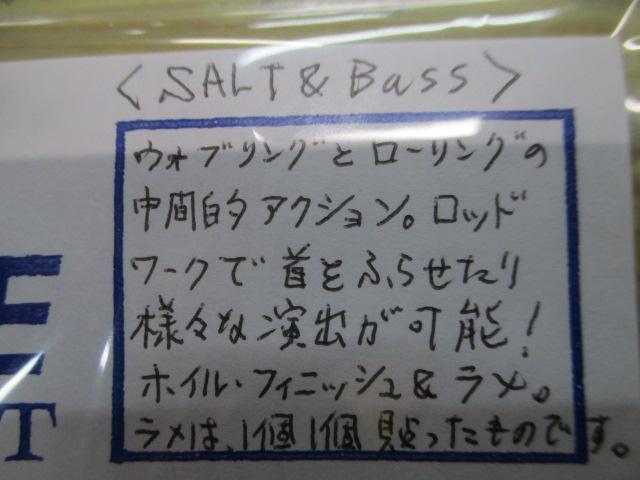 <SALT & Bass>
ウォブリングとローリングの
中間的アクション。ロッド
ワークで首をふらせたり
様々な演出が可能!
ホイル・フィニッシュ&ラメ。
ラメは、1個1個貼ったものです。
T